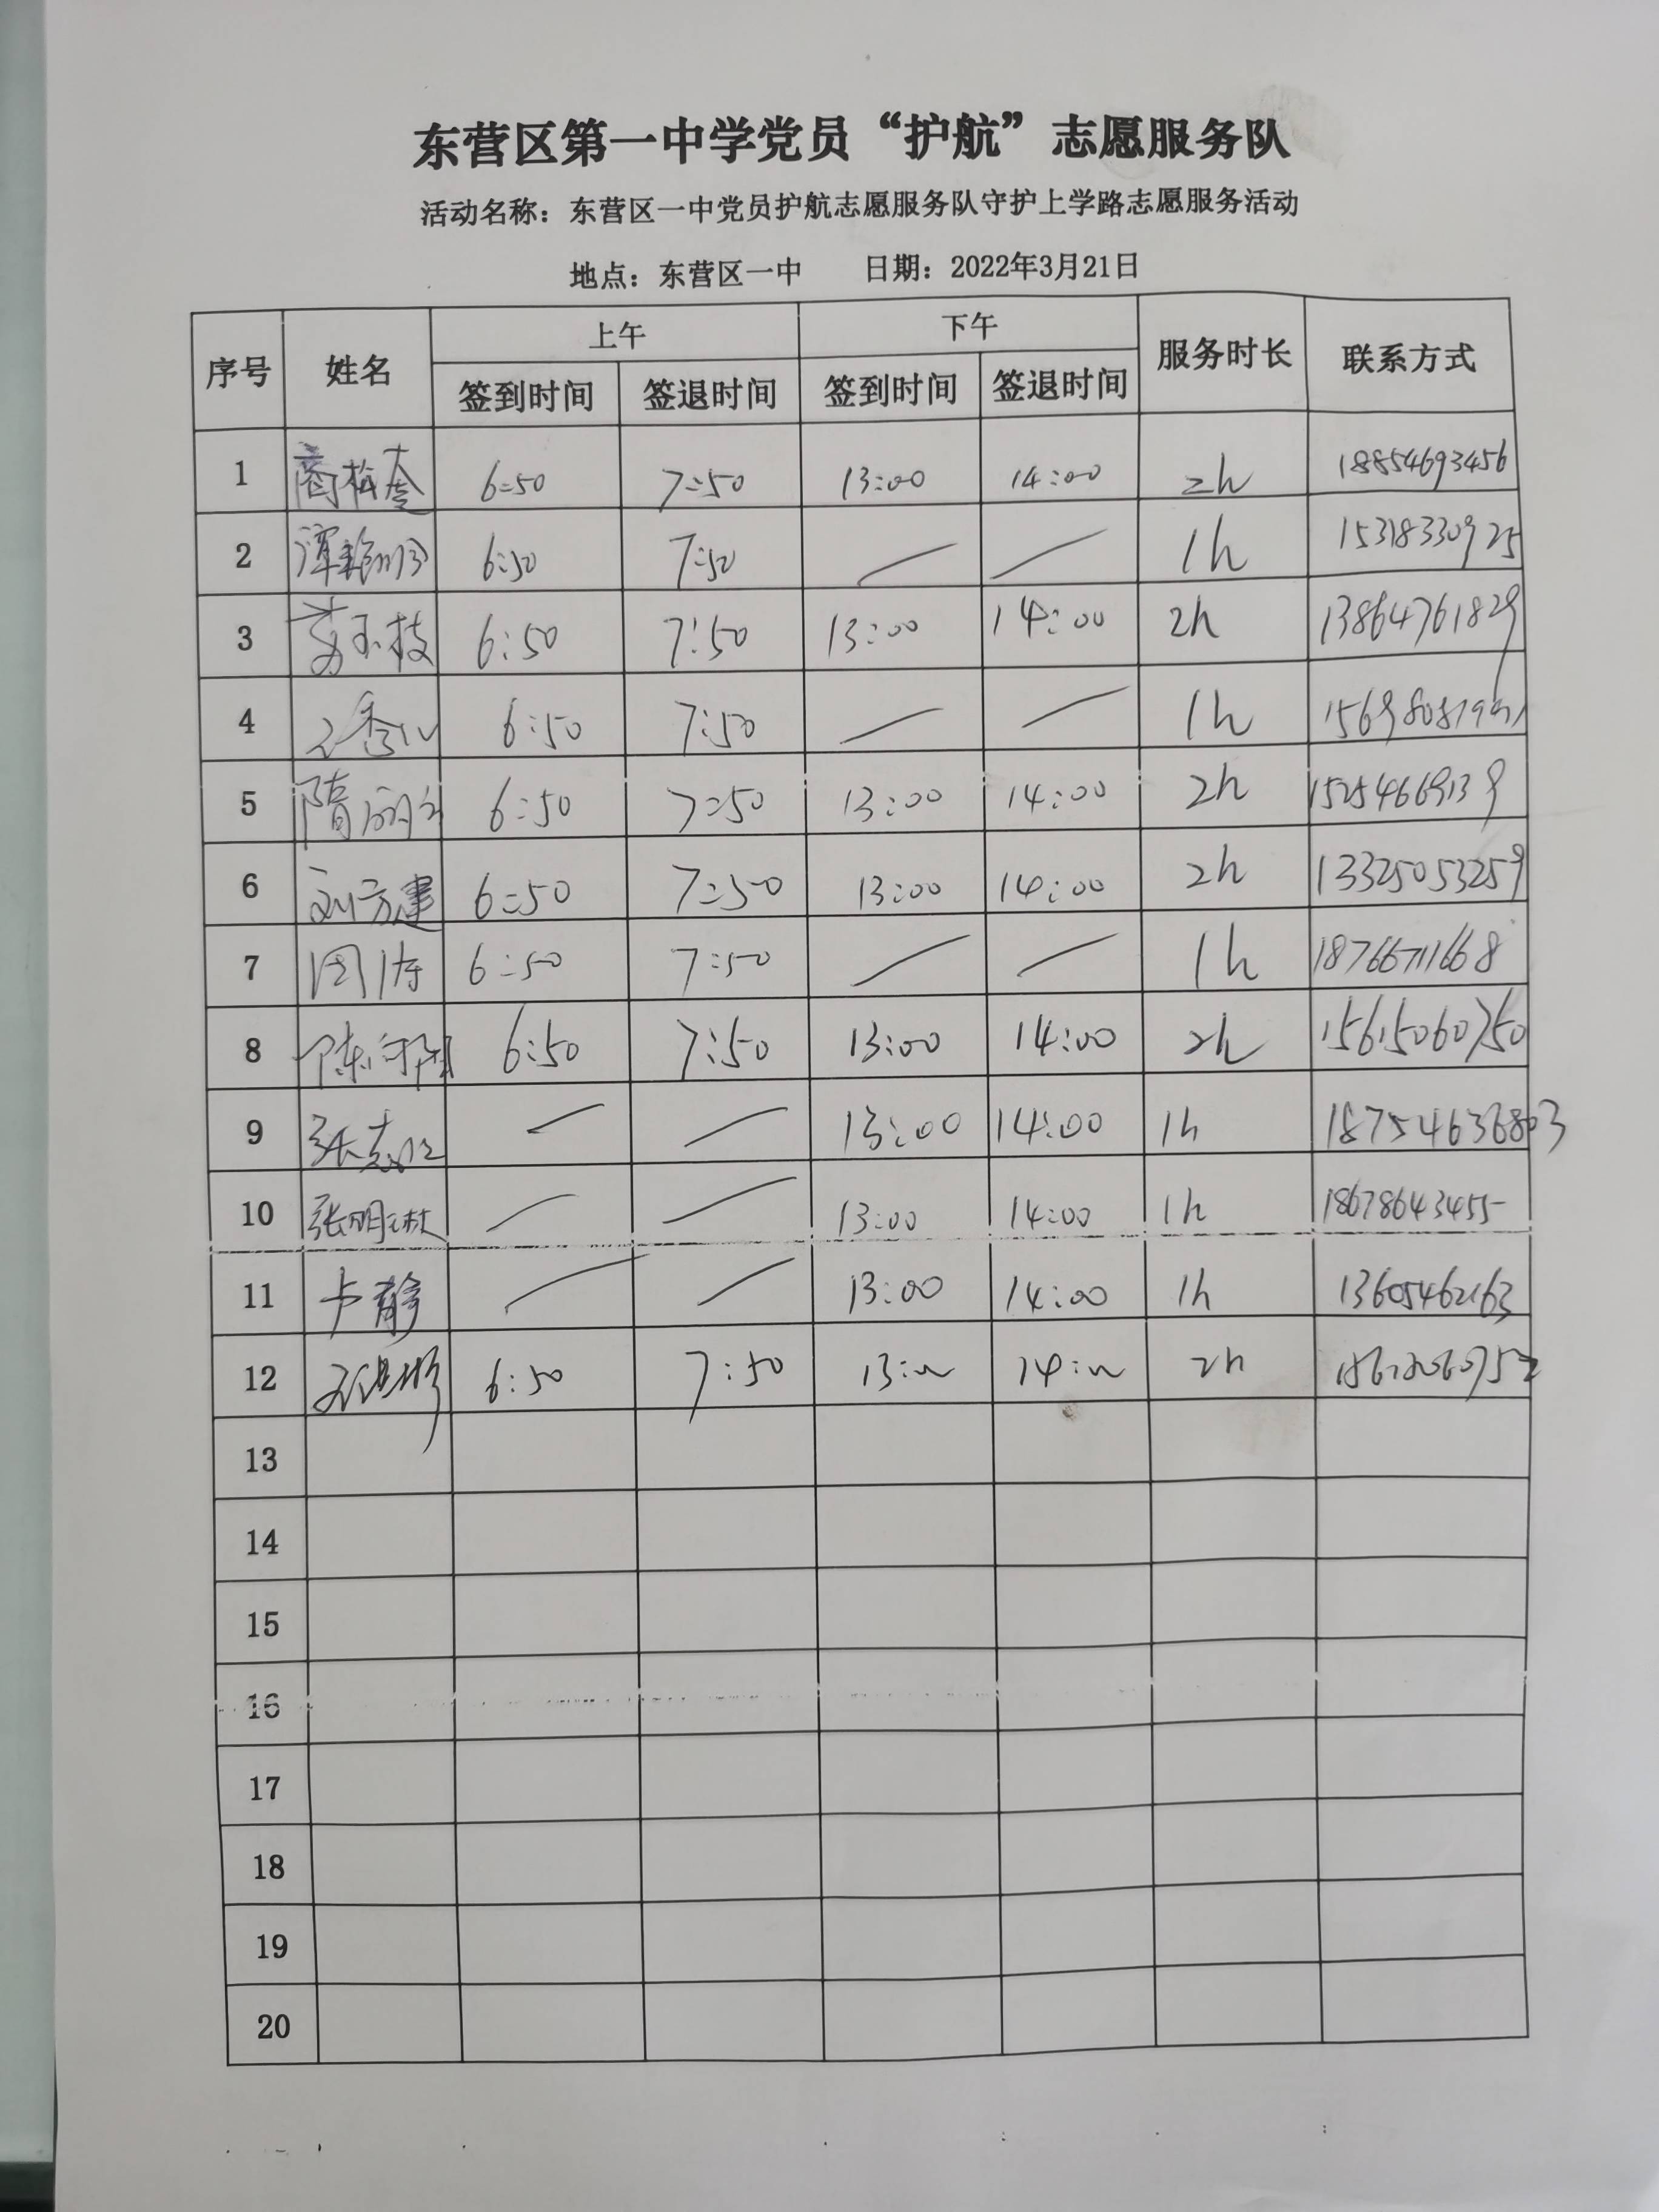 东营区第一中学党员“护航”志愿服务队
活动名称：东营区一中党员护航志愿服务队守护上学路志愿服务活动
地点：东营区一中 日期：2022年3月21日
序号 姓名 上午 下午 服务时长 联系方式
签到时间 签退时间 签到时间 签退时间
1 6:50 7:50 13:00 14:00 2h 18854693456
2 6:50 7:50 1h 15318330925
3 6:50 7:50 13:00 14:00 2h 13864761829
4 6:50 7:50 1h
5 6:50 7:50 13:00 14:00 2h 15254669139
6 刘方建 6:50 7:50 13:00 14:00 2h 13325053259
7 周涛 6:50 7:50 1h 18766711668
8 6:50 7:50 13:00 14:00 2h 15615060750
9 13:00 14:00 1h
10 13:00 14:00 1h 18678643455
11 卢静 13:00 14:00 1h 13605462163
12 6:50 7:50 13:00 14:00 2h
13
14
15
16
17
18
19
20